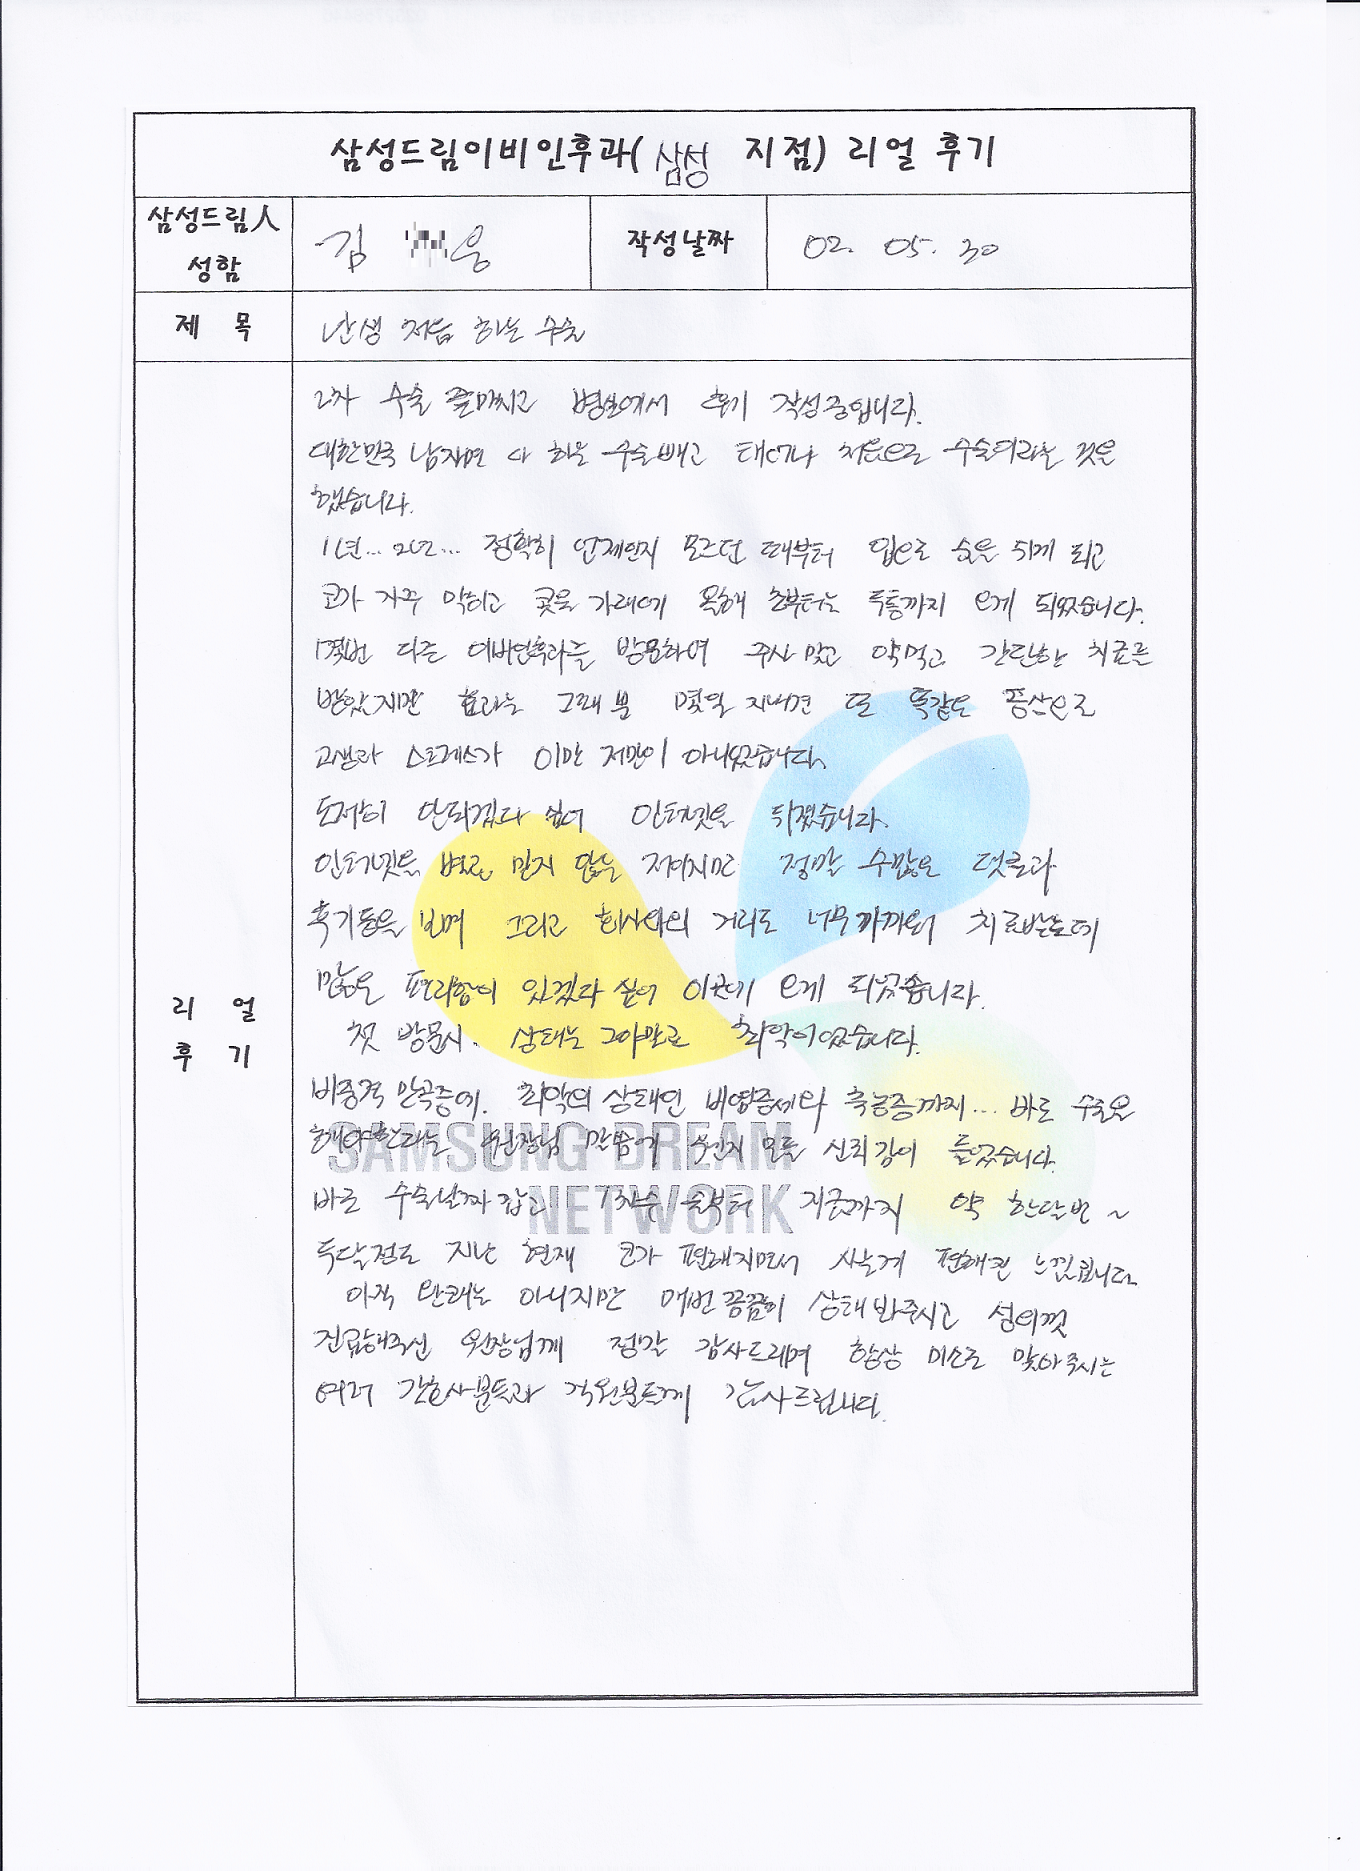 삼성드림이비인후과( 삼성 지점) 리얼 후기
삼성드림人
성함
김 웅
작성날짜
02. 05. 30
제 목
난생 처음 하는 수술
리 얼
후 기
2차 수술 끝마치고 병실에서 후기 작성중입니다.
대한민국 남자면 다 하는 수술빼고 태어나 처음으로 수술이라는 것을
했습니다.
1년... 2년... 정확히 언제인지 모르던 때부터 입으로 숨을 쉬게 되고
코가 자꾸 막히고 콧물 가래에 올해 초부터는 두통까지 오게 되었습니다.
몇번 다른 이비인후과를 방문하여 주사 맞고 약먹고 간단한 치료를
받았지만 효과는 그때 뿐 몇일 지나면 또 똑같은 증상으로
고생과 스트레스가 이만 저만이 아니었습니다.
도저히 안되겠다 싶어 인터넷을 뒤졌습니다.
인터넷을 별로 믿지 않는 저이지만 정말 수많은 댓글과
후기들을 보며 그리고 회사와의 거리도 너무 가까워 치료받는데
많은 편리함이 있겠다 싶어 이곳에 오게 되었습니다.
첫 방문시. 상태는 그야말로 최악이었습니다.
비중격 만곡증에. 최악의 상태인 비염증세와 축농증까지... 바로 수술을
해야한다는 원장님 말씀에 왠지 모를 신뢰감이 들었습니다.
바로 수술날짜 잡고 1차수술부터 지금까지 약 한달반 ~
두달정도 지난 현재 코가 편해지면서 사는게 편해진 느낌입니다.
아직 완쾌는 아니지만 매번 꼼꼼히 상태 봐주시고 성의껏
진료해주신 원장님께 정말 감사드리며 항상 미소로 맞아주시는
여러 간호사분들과 직원분들께 감사드립니다.
SAMSUNG DREAM
NETWORK